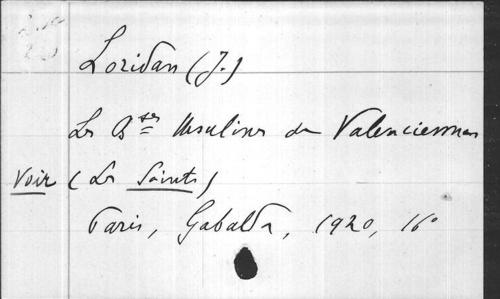 Loridan (J.)
Les Bses Ursulines de Valenciennes
Voir (Les Saints)
Paris, Gabalda, 1920, 16°